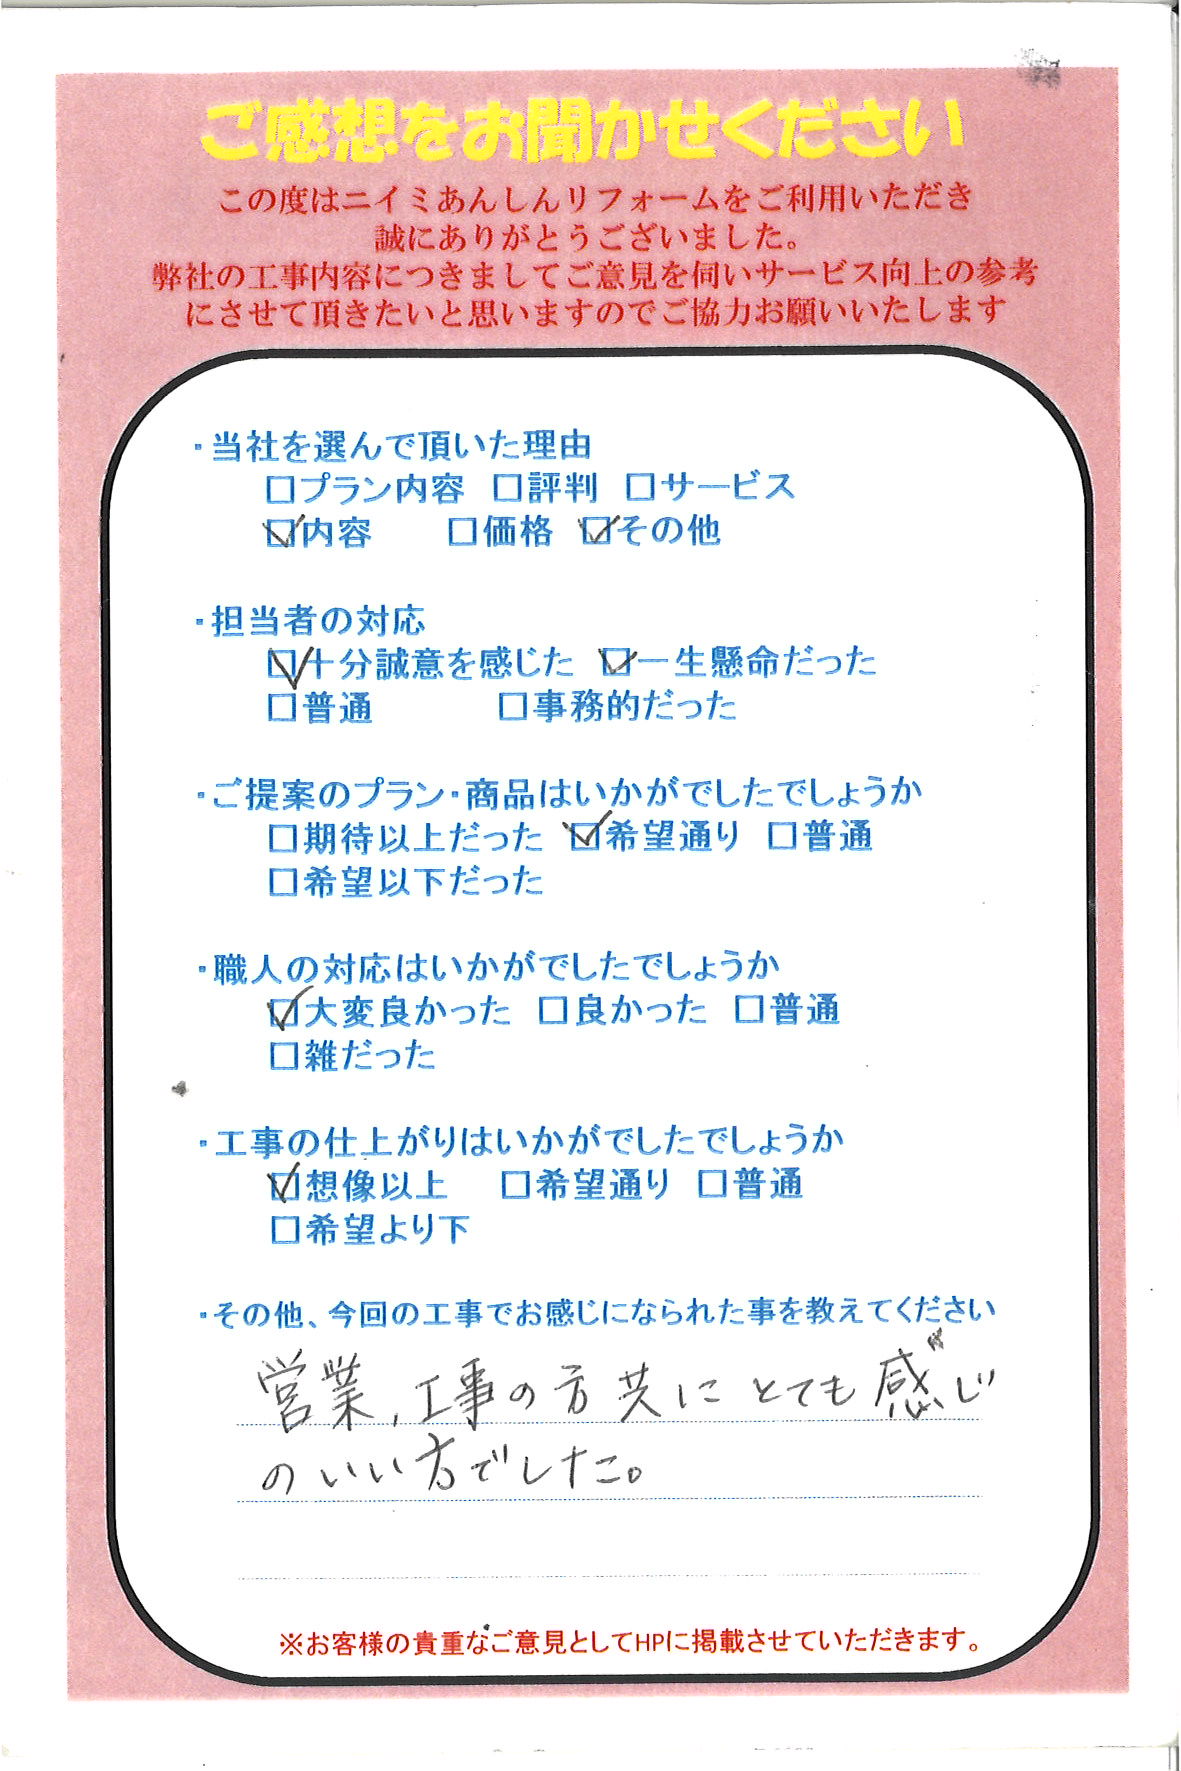 ご感想をお聞かせください
この度はニイミあんしんリフォームをご利用いただき
誠にありがとうございました。
弊社の工事内容につきましてご意見を伺いサービス向上の参考
にさせて頂きたいと思いますのでご協力お願いいたします
・当社を選んで頂いた理由
□プラン内容 □評判 □サービス
☑内容 □価格 ☑その他
・担当者の対応
☑十分誠意を感じた ☑一生懸命だった
□普通 □事務的だった
・ご提案のプラン・商品はいかがでしたでしょうか
□期待以上だった ☑希望通り □普通
□希望以下だった
・職人の対応はいかがでしたでしょうか
☑大変良かった □良かった □普通
□雑だった
・工事の仕上がりはいかがでしたでしょうか
☑想像以上 □希望通り □普通
□希望より下
・その他、今回の工事でお感じになられた事を教えてください
営業、工事の方共にとても感じ
のいい方でした。
※お客様の貴重なご意見としてHPに掲載させていただきます。